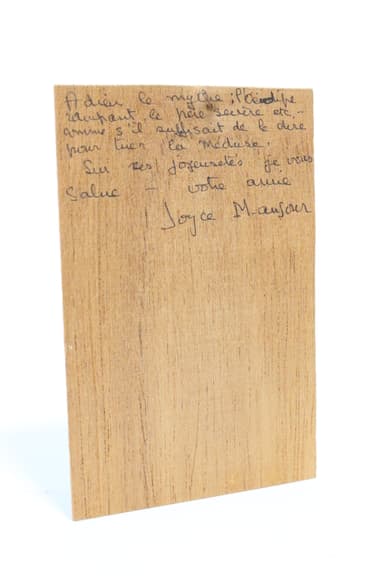 Adieu le mythe ; l'oedipe
rampant, le père sévère etc. -
comme s'il suffisait de le dire
pour tuer la Méduse.
Sur ces joyeusetés je vous
Salue - votre amie
Joyce Mansour